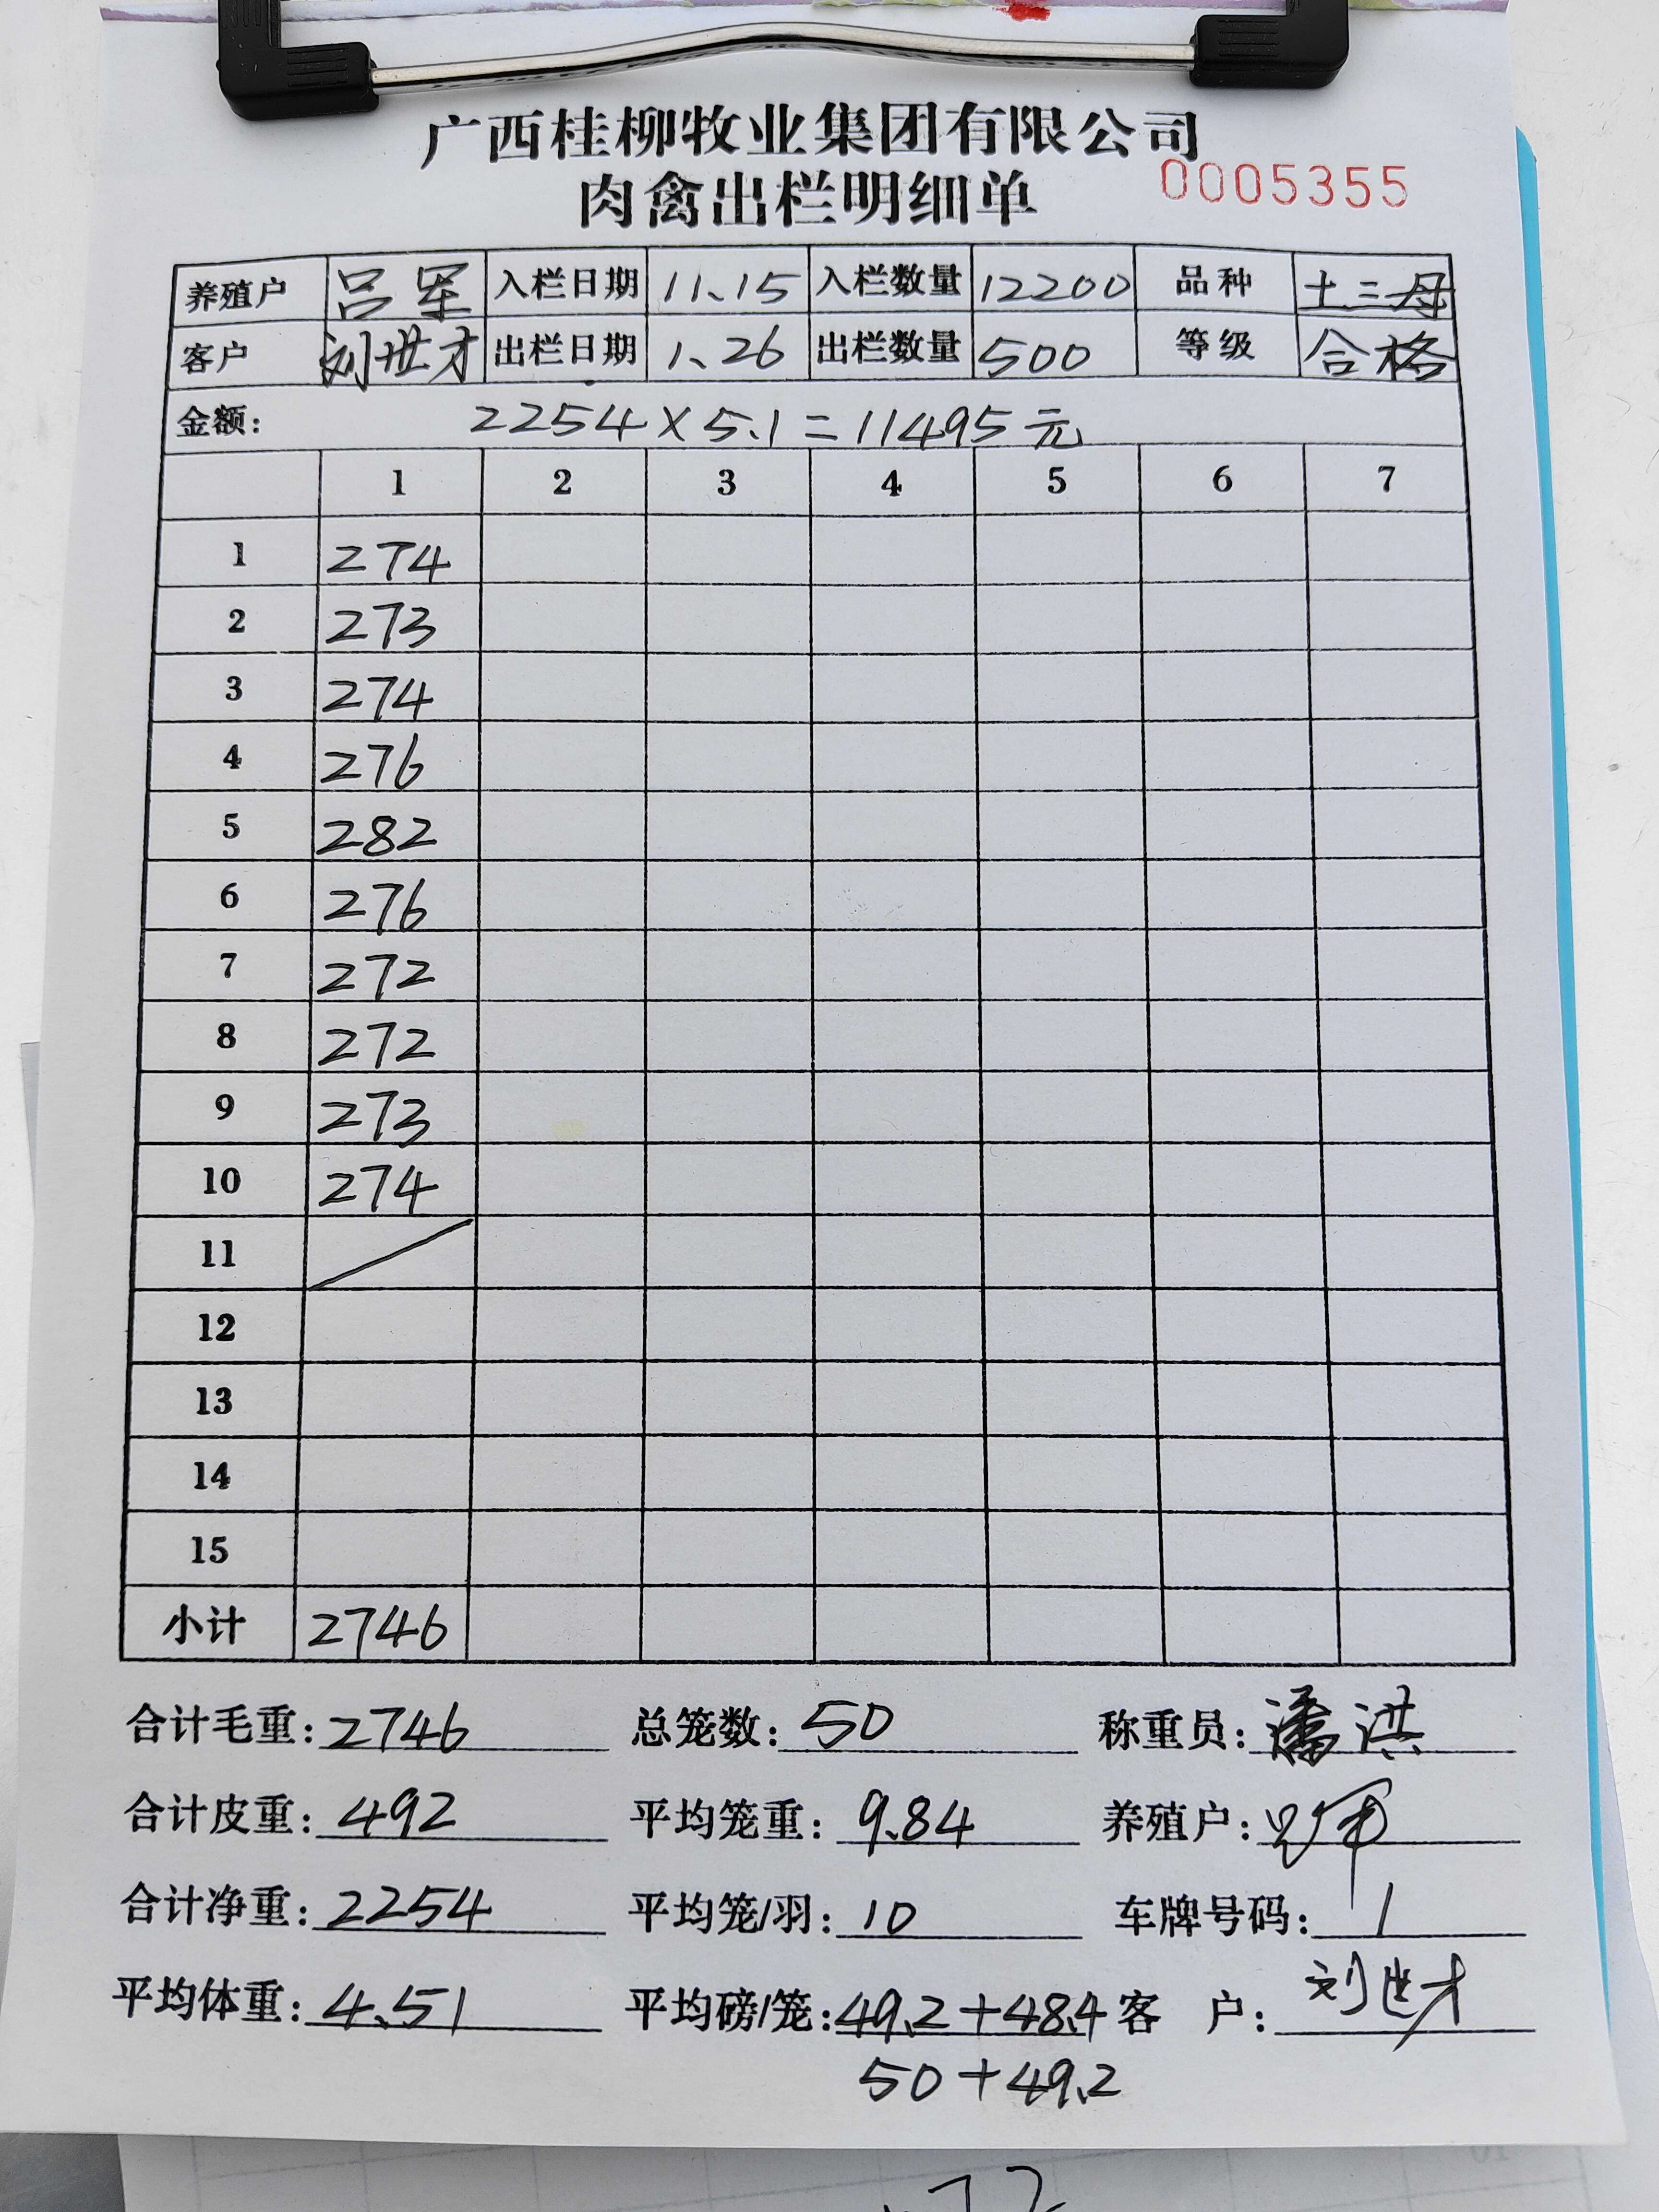 广西桂柳牧业集团有限公司
肉禽出栏明细单 0005355
养殖户 吕军 入栏日期 11.15 入栏数量 12200 品种 土二母
客户 刘世才 出栏日期 1.26 出栏数量 500 等级 合格
金额: 2254×5.1=11495元
1 2 3 4 5 6 7
1 274
2 273
3 274
4 276
5 282
6 276
7 272
8 272
9 273
10 274
11
12
13
14
15
小计 2746
合计毛重:2746 总笼数:50 称重员:潘洪
合计皮重:492 平均笼重:9.84 养殖户:吕军
合计净重:2254 平均笼/羽:10 车牌号码:1
平均体重:4.51 平均磅/笼:49.2+48.4 客 户:刘世才
50+49.2